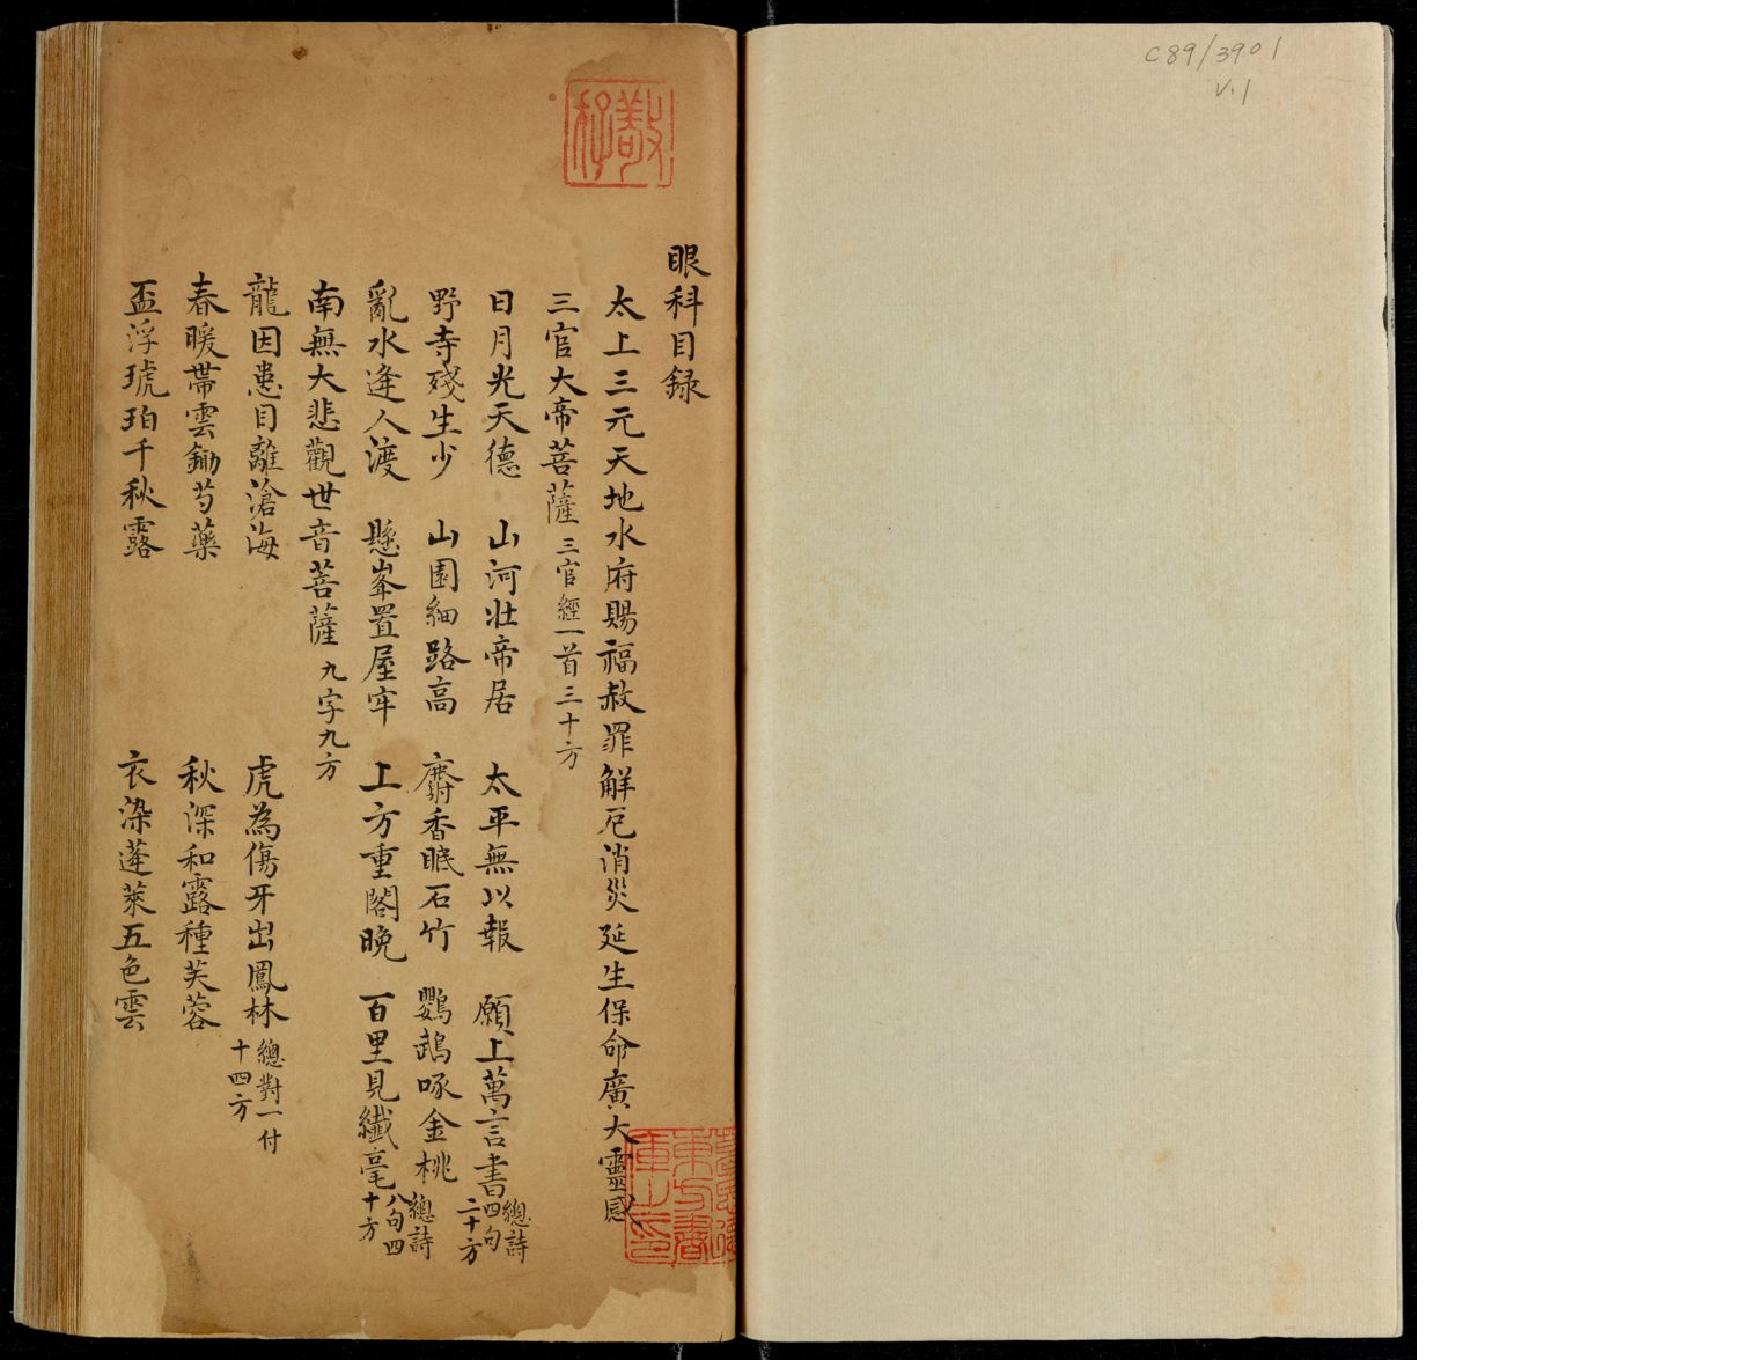 C89/3901
V.1
眼科目録
太上三元天地水府賜福赦罪解厄消災延生保命廣大靈感
三官大帝菩薩 三官經一首三十方
日月光天德 山河壮帝居 太平無以報 願上萬言書 總詩四句二十方
野寺殘生少 山園細路高 麝香眠石竹 鸚鵡啄金桃
亂水逢人渡 懸峯置屋牢 上方重閣晚 百里見纖毫 總詩八句四十方
南無大悲觀世音菩薩 九字九方
龍因患目離滄海 虎為傷牙出鳳林 總對一付十四方
春暖帶雲鋤芍藥 秋深和露種芙蓉
盃浮琥珀千秋露 衣染蓬萊五色雲